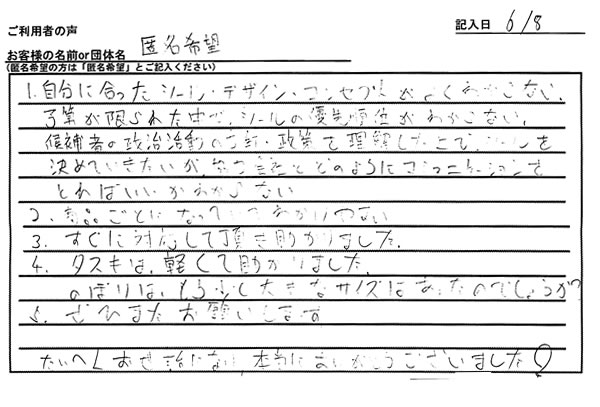 ご利用者の声
記入日 6/8
お客様の名前or団体名 匿名希望
(匿名希望の方は「匿名希望」とご記入ください)
1.自分に合ったツール・デザイン・コンセプトがよくわからない。
予算が限られた中で、ツールの優先順位がわからない。
候補者の政治活動の方針・政策を理解した上で、ツールを
決めていきたいが、どのようにコミュニケーションを
とればいいかわからない
2. 商品ごとになっていてわかりやすい
3. すぐに対応して頂き助かりました。
4. タスキは、軽くて助かりました。
のぼりは、もう少し大きなサイズはあったのでしょうか?
5. ぜひまたお願いします
たいへんお世話になり、本当にありがとうございました